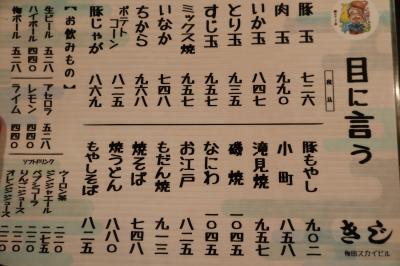 目に言う
税込
豚玉 七三六
肉玉 九九〇
いか玉 八四七
とり玉 九三五
すじ玉 九五七
ミックス焼 九五七
いなか 七四八
ちから 九六八
ポテトコーン 八二五
豚じゃが 八六九
【お飲みもの】
生ビール 五二八
ハイボール 四四〇
梅ボール 五二八
アセロラ 五二八
レモン 四四〇
ライム 四四〇
きじ
梅田スカイビル
豚もやし 九〇二
小町 八五八
滝見焼 九五七
磯焼 一〇四五
なにわ 一〇四五
お江戸 九五七
もだん焼 九一三
焼そば 七四八
焼うどん 八八〇
もやしそば 八二五
ソフトドリンク
ウーロン茶 二二〇
ジンジャエール 二七五
ペプシコーラ 二二〇
りんごジュース
オレンジジュース